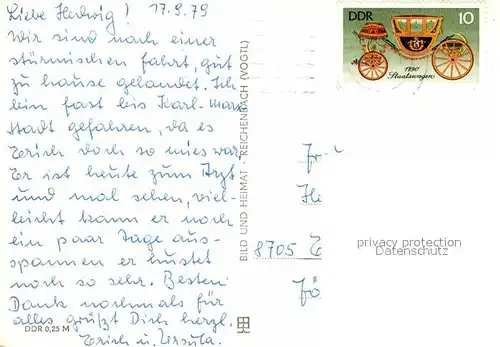 Liebe Hedwig! 17.9.79
Wir sind nach einer
stürmischen Fahrt, gut
zu hause gelandet. Ich
bin fast bis Karl-Marx
Stadt gefahren, da es
Erich doch so mies war.
Er ist heute zum Arzt
und mal sehen, viel-
leicht kann er noch
ein paar Tage aus-
spannen er hustet
noch so sehr. Besten
Dank nochmals für
alles grüßt Dich herzl.
Erich u. Ursula.
DDR 0,25 M
BILD UND HEIMAT · REICHENBACH (VOGTL)
DDR 10
1790
Staatswagen
Fr
He
8705 E
privacy protection
watermark